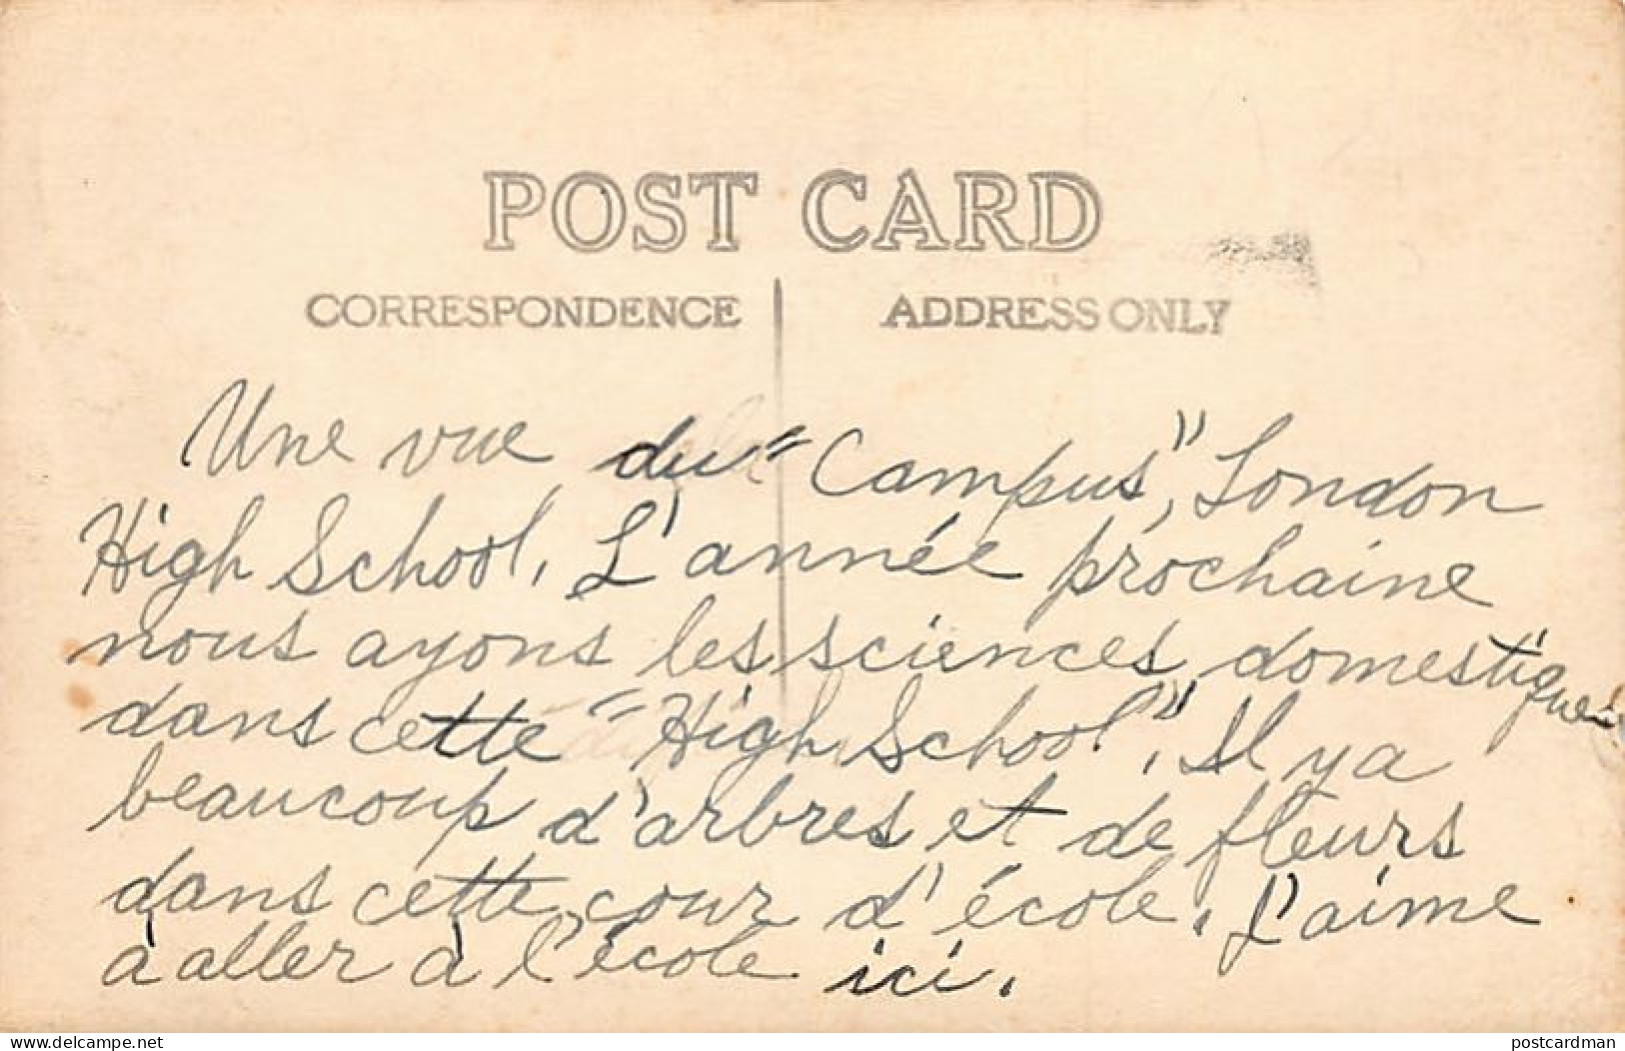 POST CARD
CORRESPONDENCE ADDRESS ONLY
Une vue du "Campus", London
High School. L'année prochaine
nous ayons les sciences domestiques
dans cette "High School". Il y a
beaucoup d'arbres et de fleurs
dans cette cour d'école. J'aime
à aller à l'école ici.
www.delcampe.net postcardman